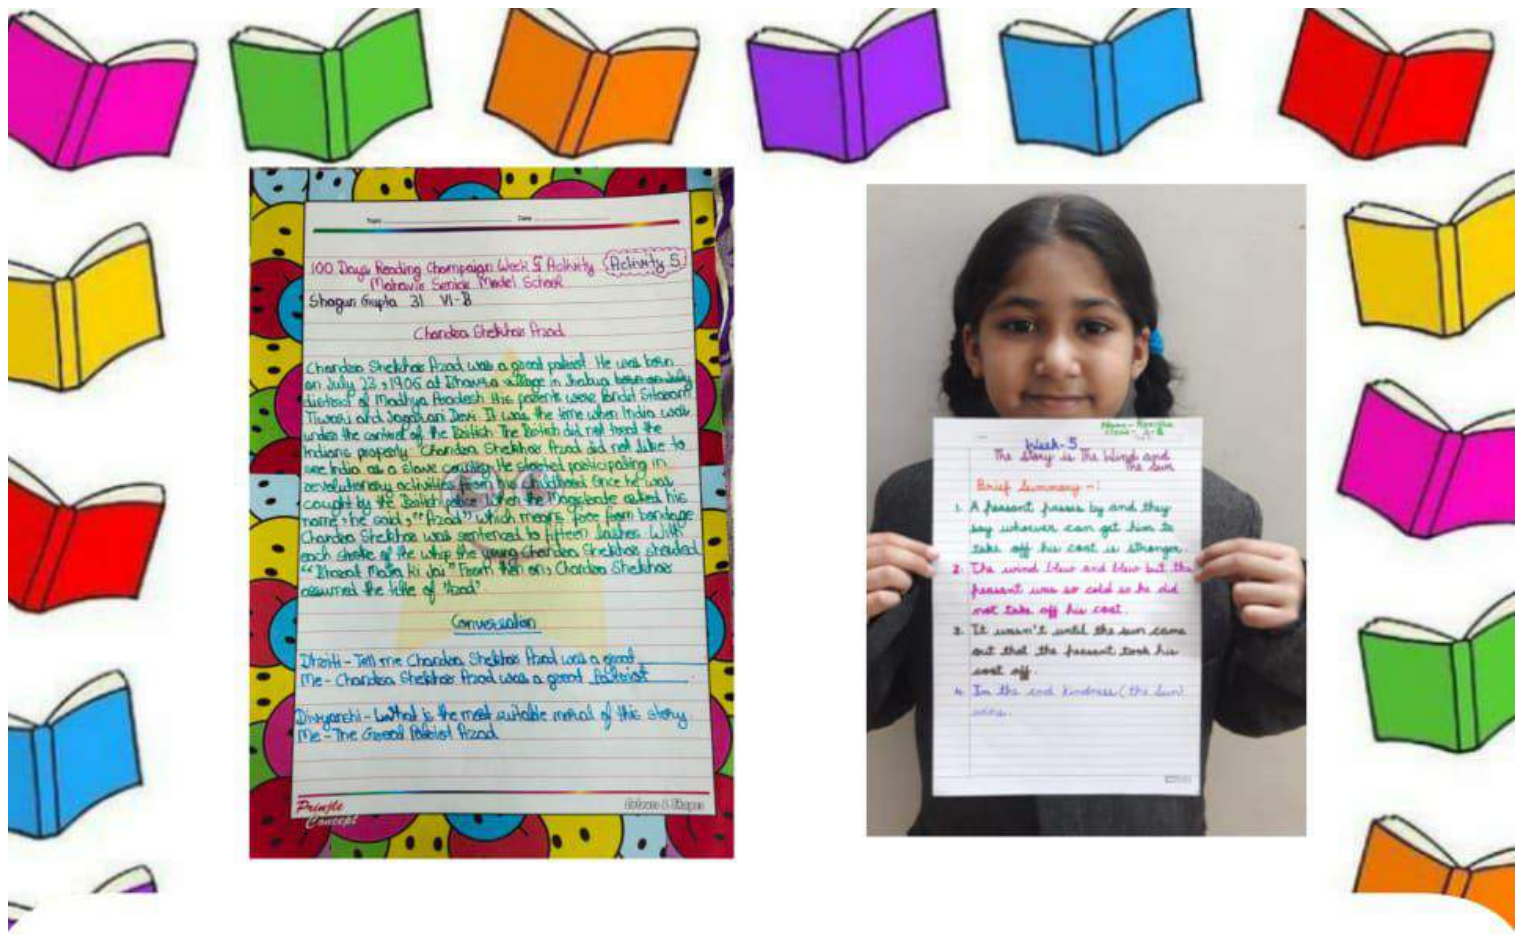 Topic Date
100 Days Reading Champaign Week 5 Activity
Activity 5
Mahavir Senior Model School
Shagun Gupta 31 VI-B
Chandra Shekhar Azad
Chandra Shekhar Azad was a great patriot. He was born
on July 23, 1906 at Dhavra village in Jhabua born on July
district of Madhya Pradesh His parents were Pandit Sitaram
Tiwari and Jagarani Devi. It was the time when India was
under the control of the British. The British did not treat the
Indians properly. Chandra Shekhar Azad did not like to
see India as a slave country. He started participating in
revolutionary activities from his childhood Once he was
caught by the British police. When the Magistrate asked his
name, he said, "Azad" which means free from bondage
Chandra Shekhar was sentenced to fifteen lashes. With
each stroke of the whip the young Chandra Shekhar shouted
"Bharat Mata ki Jai" From then on, Chandra Shekhar
assumed the title of 'Azad'
Conversation
Dhriti - Tell me Chandra Shekhar Azad was a great
Me - Chandra Shekhar Azad was a great Patriot
Divyanshi - What is the most suitable moral of this story
Me - The Great Patriot Azad
Prinjle Concept
Colours & Shapes
Name -
Class -
Week-5
The story is The Wind and
the Sun
Brief Summary -:
1. A peasant passes by and they
say whoever can get him to
take off his coat is stronger.
2. The wind blew and blew but the
peasant was so cold so he did
not take off his coat.
3. It wasn't until the sun came
out that the peasant took his
coat off.
4. In the end kindness (the Sun)
wins.